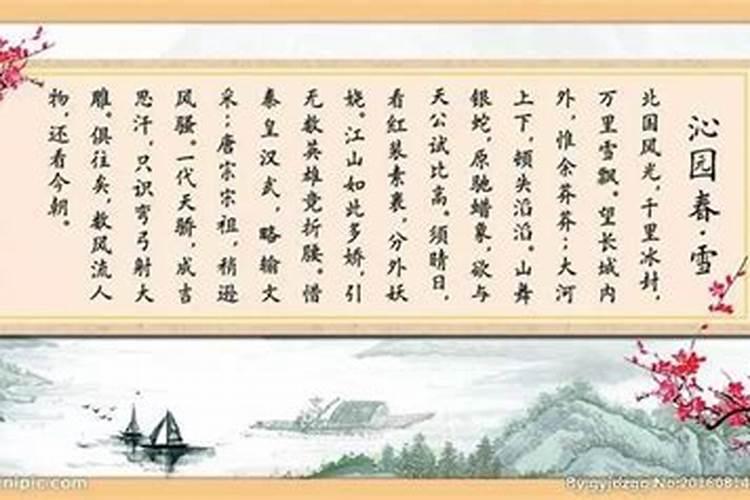 沁园春·雪
北国风光，千里冰封，
万里雪飘。望长城内
外，惟余莽莽；大河
上下，顿失滔滔。山舞
银蛇，原驰蜡象，欲与
天公试比高。须晴日，
看红装素裹，分外妖
娆。江山如此多娇，引
无数英雄竞折腰。惜
秦皇汉武，略输文
采；唐宗宋祖，稍逊
风骚。一代天骄，成吉
思汗，只识弯弓射大
雕。俱往矣，数风流人
物，还看今朝。
nipic.com